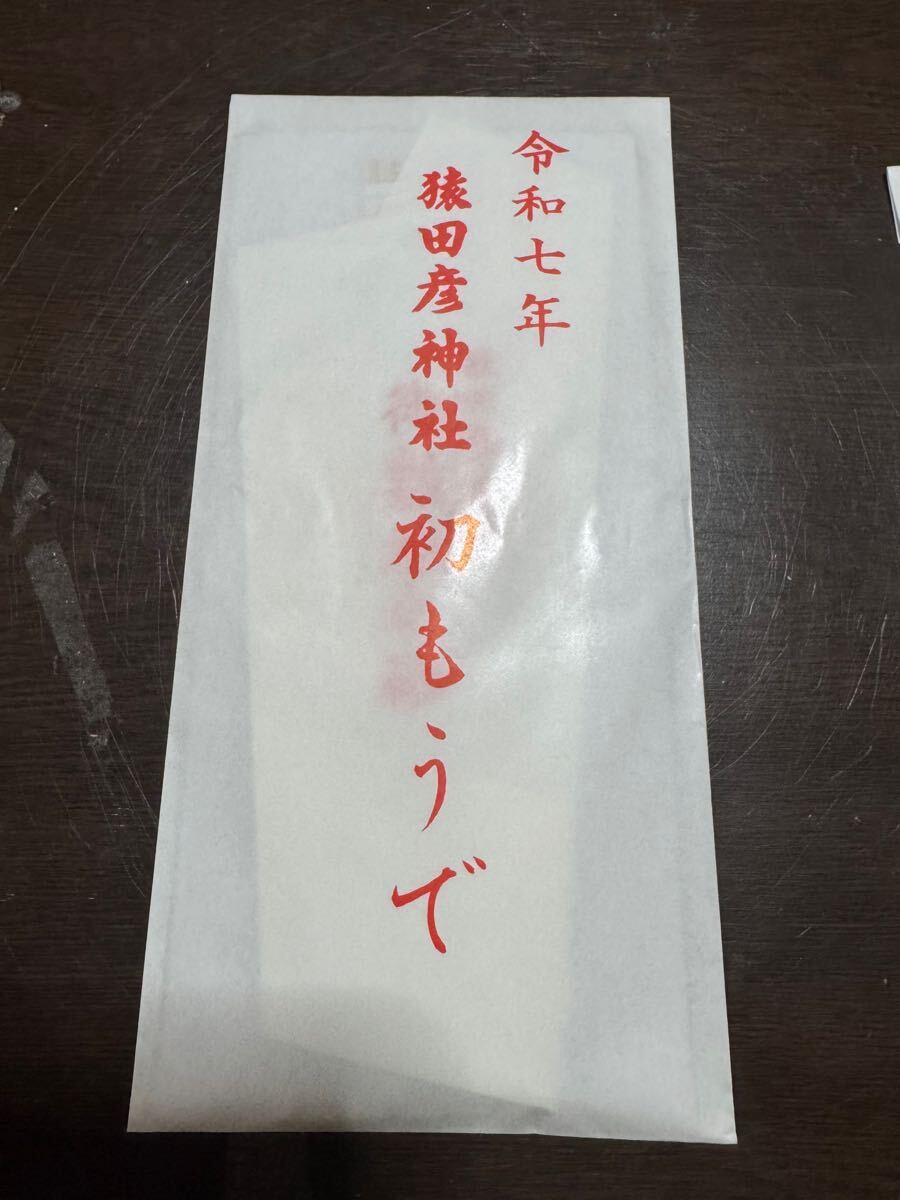 令和七年
猿田彦神社 初もうで